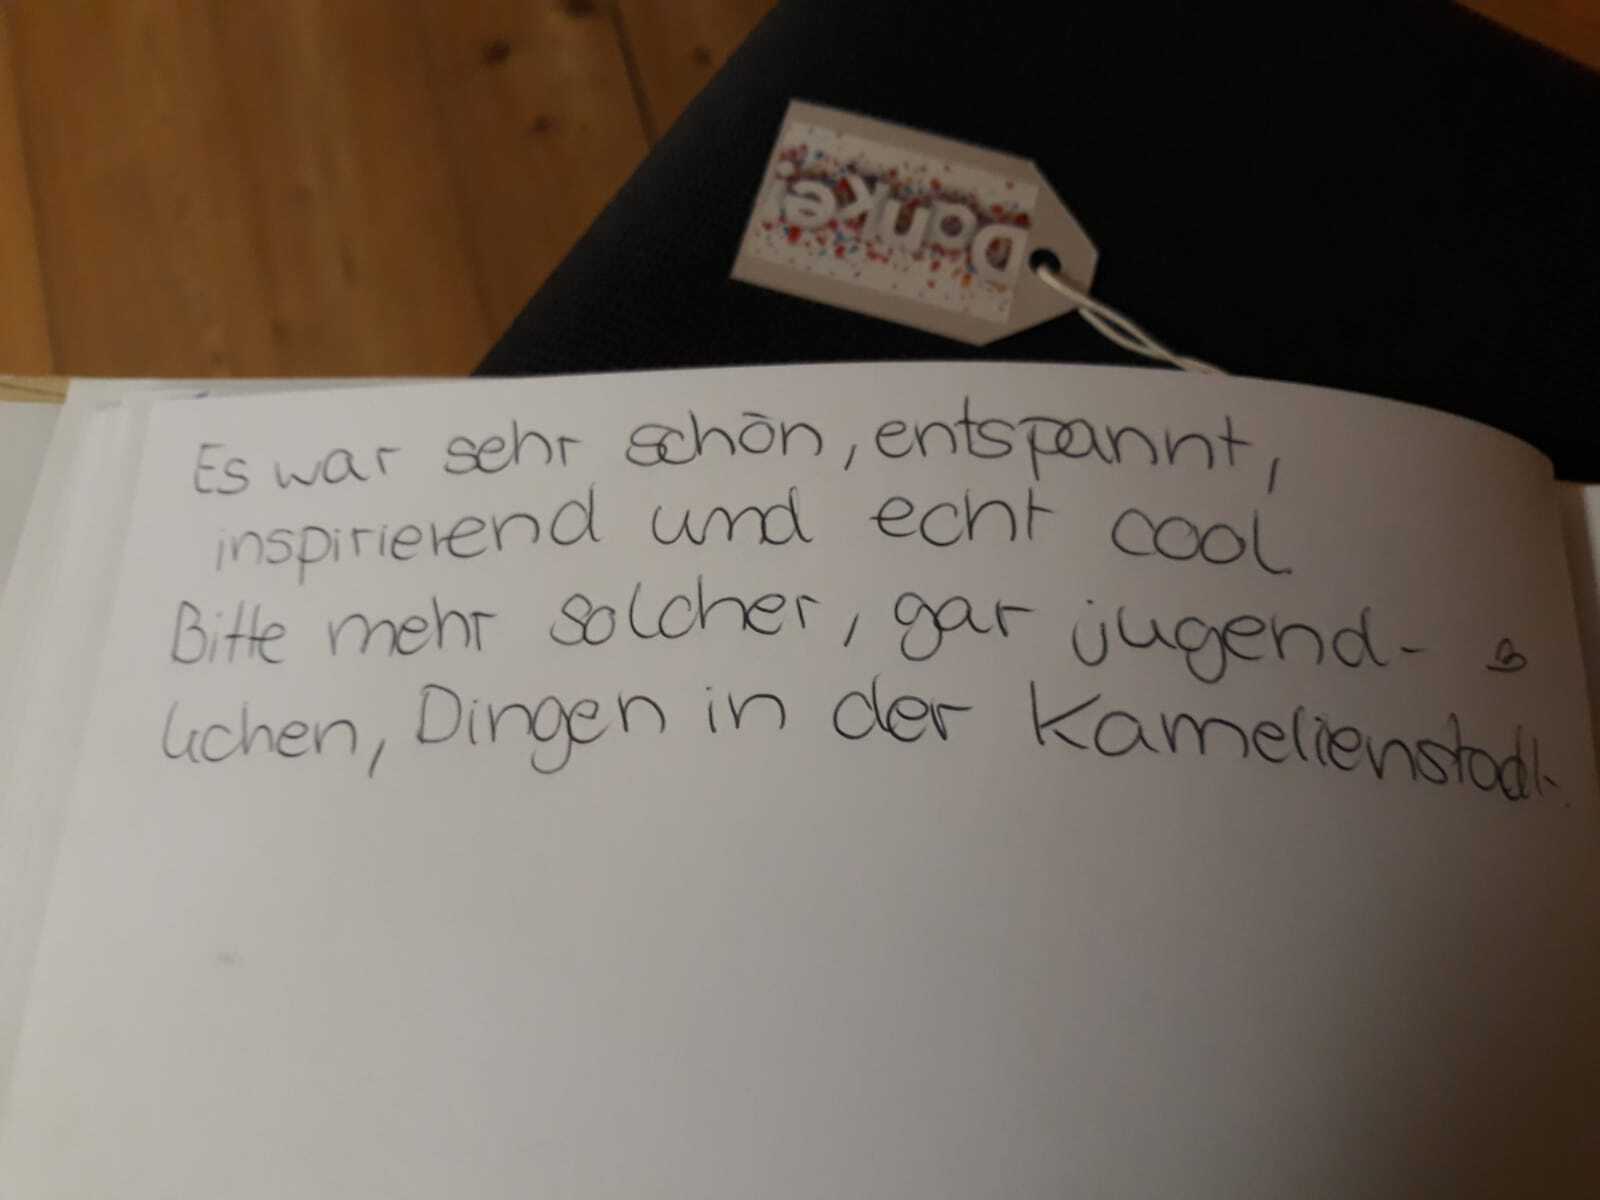 Danke
Es war sehr schön, entspannt,
inspirierend und echt cool
Bitte mehr solcher, gar jugend-
lichen, Dingen in der Kamelienstadt.